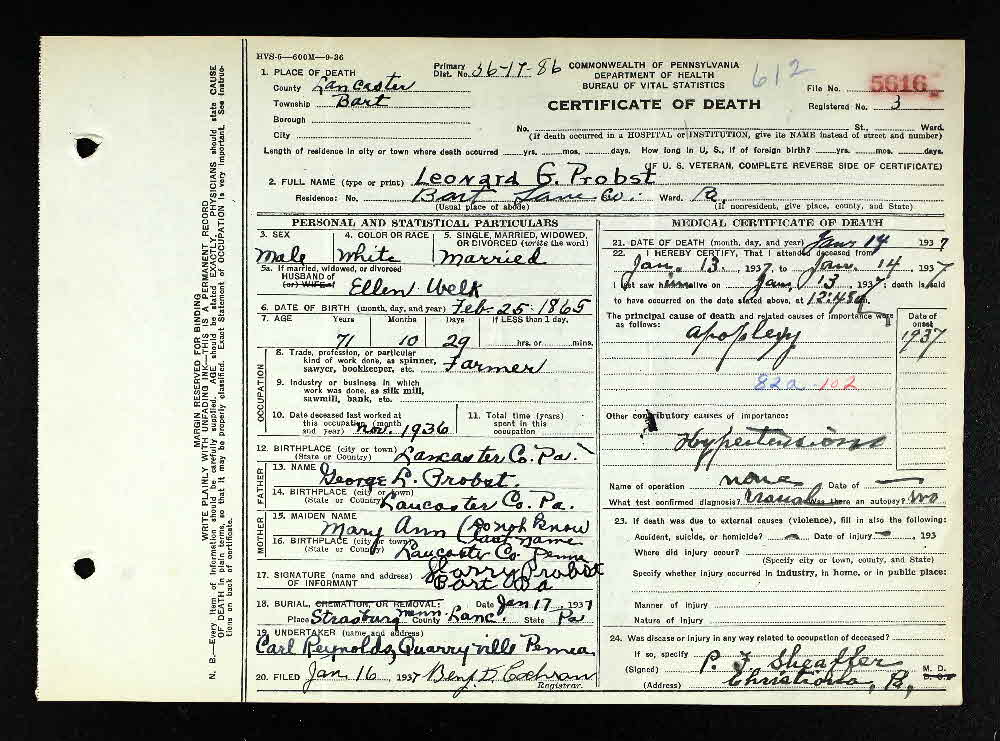 HVS-5—600M—9-36
1. PLACE OF DEATH
County Lancaster
Township Bart
Borough
City
Primary Dist. No. 36-17-86
COMMONWEALTH OF PENNSYLVANIA
DEPARTMENT OF HEALTH
BUREAU OF VITAL STATISTICS
CERTIFICATE OF DEATH
612
File No. 5616
Registered No. 3
No. St., Ward.
(If death occurred in a HOSPITAL or INSTITUTION, give its NAME instead of street and number)
Length of residence in city or town where death occurred yrs. mos. days. How long in U. S., if of foreign birth? yrs. mos. days.
(IF U. S. VETERAN, COMPLETE REVERSE SIDE OF CERTIFICATE)
2. FULL NAME (type or print) Leonard G. Probst
Residence: No. Bart Lanc Co. Ward. Pa.
(Usual place of abode) (If nonresident, give place, county, and State)
PERSONAL AND STATISTICAL PARTICULARS
3. SEX Male
4. COLOR OR RACE White
5. SINGLE, MARRIED, WIDOWED, OR DIVORCED (write the word) Married
5a. If married, widowed, or divorced
HUSBAND of
(or) WIFE of Ellen Welk
6. DATE OF BIRTH (month, day, and year) Feb-25-1865
7. AGE Years Months Days If LESS than 1 day,
71 10 29 hrs. or mins.
OCCUPATION
8. Trade, profession, or particular
kind of work done, as spinner,
sawyer, bookkeeper, etc. Farmer
9. Industry or business in which
work was done, as silk mill,
sawmill, bank, etc.
10. Date deceased last worked at
this occupation (month
and year) Nov. 1936
11. Total time (years)
spent in this
occupation
12. BIRTHPLACE (city or town) Lancaster Co. Pa.
(State or Country)
FATHER
13. NAME George L. Probst.
14. BIRTHPLACE (city or town)
(State or Country) Lancaster Co. Pa.
MOTHER
15. MAIDEN NAME Mary Ann (do not know
last name
16. BIRTHPLACE (city or town)
(State or Country) Lancaster Co Penna
17. SIGNATURE (name and address) Harry Probst
OF INFORMANT Bart Pa
18. BURIAL, CREMATION, OR REMOVAL: Date Jan 17, 1937
Place Strasburg Menn. County Lanc. State Pa
19. UNDERTAKER (name and address)
Carl Reynolds, Quarryville Penna
20. FILED Jan 16 1937 Benj. D. Cochran
Registrar.
MEDICAL CERTIFICATE OF DEATH
21. DATE OF DEATH (month, day, and year) Jan 14 1937
22. I HEREBY CERTIFY, That I attended deceased from
Jan. 13. 1937, to Jan. 14, 1937
I last saw him alive on Jan. 13 1937; death is said
to have occurred on the date stated above, at 12:48
The principal cause of death and related causes of importance were
as follows:
Date of onset
apoplexy 1937
82a-102
Other contributory causes of importance:
Hypertension
Name of operation none Date of
What test confirmed diagnosis? Usual Was there an autopsy? No
23. If death was due to external causes (violence), fill in also the following:
Accident, suicide, or homicide? Date of injury , 193
Where did injury occur?
(Specify city or town, county, and State)
Specify whether injury occurred in industry, in home, or in public place:
Manner of injury
Nature of injury
24. Was disease or injury in any way related to occupation of deceased?
If so, specify
(Signed) P. J. Sheaffer M. D.
(Address) Christiana, Pa,
MARGIN RESERVED FOR BINDING
WRITE PLAINLY WITH UNFADING INK—THIS IS A PERMANENT RECORD
N. B.—Every item of information should be carefully supplied. AGE should be stated EXACTLY. PHYSICIANS should state CAUSE
OF DEATH in plain terms, so that it may be properly classified. Exact Statement of OCCUPATION is very important. See instruc-
tions on back of certificate.